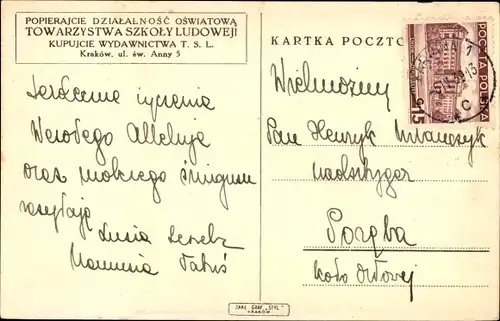 POPIERAJCIE DZIAŁALNOŚĆ OŚWIATOWĄ
TOWARZYSTWA SZKOŁY LUDOWEJ!
KUPUJCIE WYDAWNICTWA T. S. L.
Kraków, ul. św. Anny 5
Serdeczne życzenia
Wesołego Alleluja
oraz mokrego śmigusu
zasyłają
Lusia
KARTKA POCZTO
POCZTA POLSKA
15
Wielmożny
Pan Henryk Urbańczyk
Poręba
koło
ZAKŁ. GRAF. „STYL"
KRAKÓW